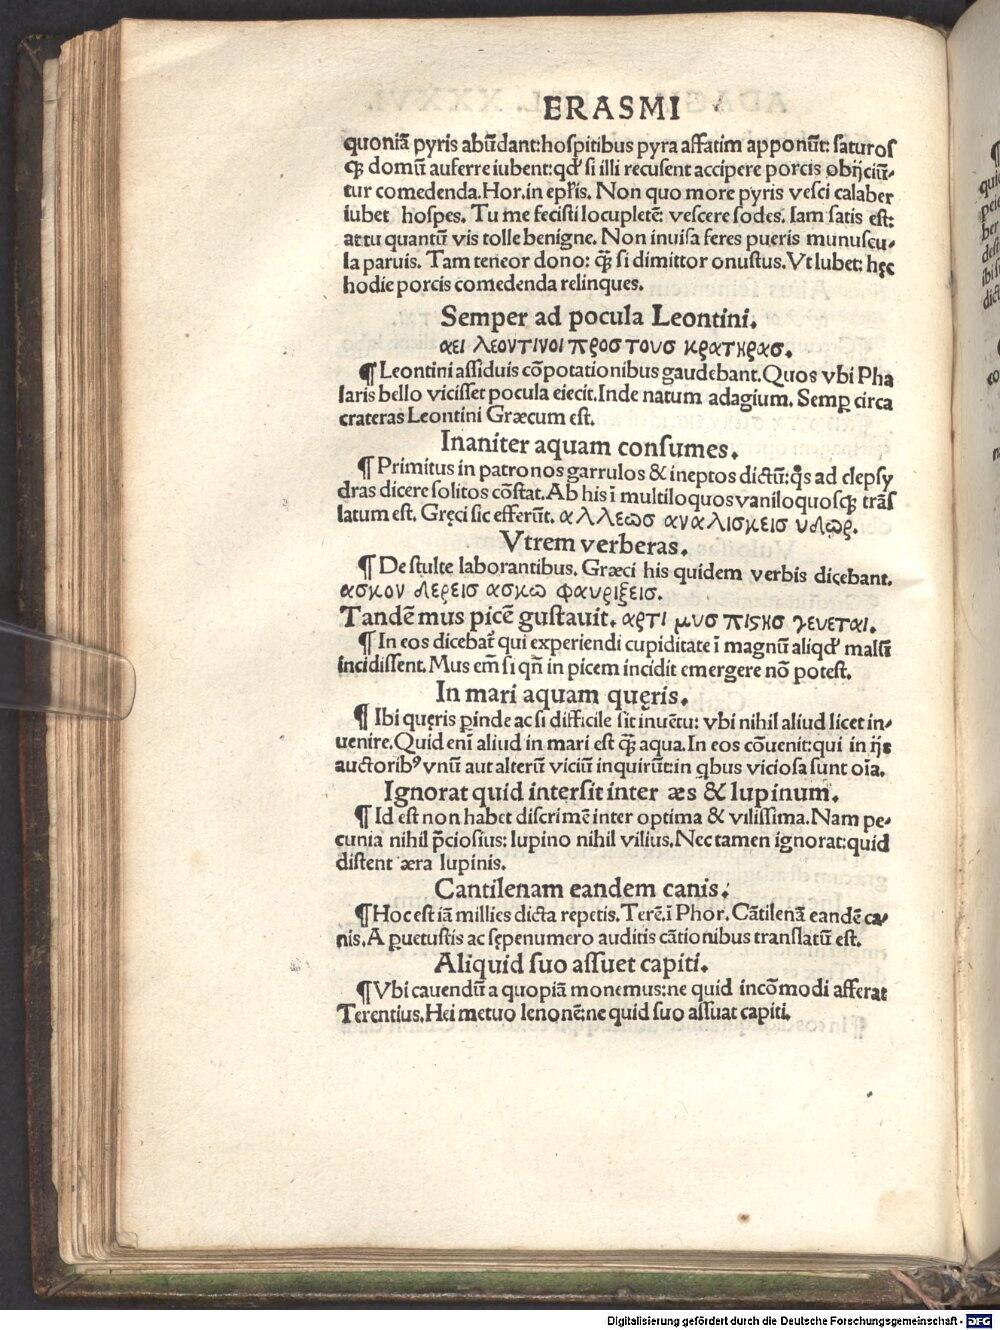 ERASMI
quoniã pyris abũdant:hospitibus pyra affatim apponũt: saturos
q̃ domũ auferre iubent:qđ si illi recusent accipere porcis obijciũ-
tur comedenda.Hor.in epl'is. Non quo more pyris vesci calaber
iubet hospes. Tu me fecisti locupletẽ: vescere sodes. Iam satis est:
at tu quantũ vis tolle benigne. Non inuisa feres pueris munuscu-
la paruis. Tam teneor dono: q̃ si dimittor onustus. Vt lubet: hęc
hodie porcis comedenda relinques.
Semper ad pocula Leontini.
αει λεοντινοι προς τους κρατηρας.
¶ Leontini assiduis cõpotationibus gaudebant. Quos vbi Pha
laris bello vicisset pocula eiecit. Inde natum adagium. Semp̱ circa
crateras Leontini Græcum est.
Inaniter aquam consumes.
¶ Primitus in patronos garrulos & ineptos dictũ: qs ad clepsy
dras dicere solitos cõstat. Ab his ĩ multiloquos vaniloquosq̃ trãs
latum est. Gręci sic efferũt. αλλεωσ αναλισκεισ υδωρ.
Vtrem verberas.
¶ De stulte laborantibus. Græci his quidem verbis dicebant.
ασκον δερεισ ασκω φαυριξεισ.
Tandẽ mus picẽ gustauit. αρτι μυσ πισησ γευεται.
¶ In eos dicebat̃ qui experiendi cupiditate ĩ magnũ aliqđ malũ
incidissent. Mus em̃ si qñ in picem incidit emergere nõ potest.
In mari aquam quęris.
¶ Ibi quęris ꝓinde ac si difficile sit inuẽtu: vbi nihil aliud licet in-
uenire. Quid enĩ aliud in mari est q̃ aqua. In eos cõuenit: qui in ijs
auctoribꝰ vnũ aut alterũ viciũ inquirũt: in qbus viciosa sunt oĩa.
Ignorat quid intersit inter æs & lupinum.
¶ Id est non habet discrimẽ inter optima & vilissima. Nam pe-
cunia nihil p̃ciosius: lupino nihil vilius. Nec tamen ignorat: quid
distent æra lupinis.
Cantilenam eandem canis.
¶ Hoc est iã millies dicta repetis. Terẽ. ĩ Phor. Cãtilenã eandẽ ca-
nis. A ꝑuetustis ac sępenumero auditis cãtionibus translatũ est.
Aliquid suo assuet capiti.
¶ Vbi cauendũ a quopiã monemus: ne quid incõmodi afferat
Terentius. Hei metuo lenonẽ: ne quid suo assuat capiti.
Digitalisierung gefördert durch die Deutsche Forschungsgemeinschaft - DFG